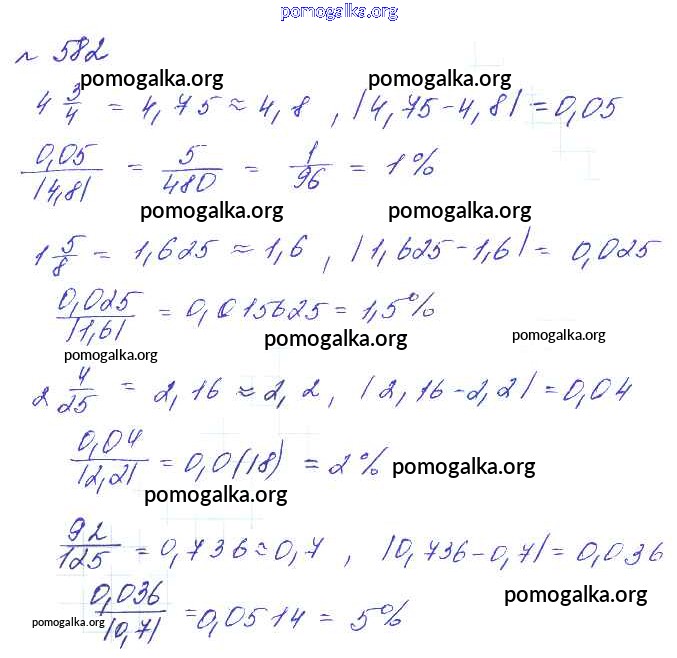 pomogalka.org
№ 582
pomogalka.org pomogalka.org
4 3/4 = 4,75 ≈ 4,8 , |4,75-4,8| = 0,05
0,05/|4,8| = 5/480 = 1/96 = 1%
pomogalka.org pomogalka.org
1 5/8 = 1,625 ≈ 1,6 , |1,625-1,6| = 0,025
0,025/|1,6| = 0,015625 = 1,5%
pomogalka.org pomogalka.org
pomogalka.org
2 4/25 = 2,16 ≈ 2,2 , |2,16-2,2| = 0,04
0,04/|2,2| = 0,0(18) = 2% pomogalka.org
pomogalka.org
92/125 = 0,736 ≈ 0,7 , |0,736-0,7| = 0,036
0,036/|0,7| = 0,0514 = 5% pomogalka.org
pomogalka.org